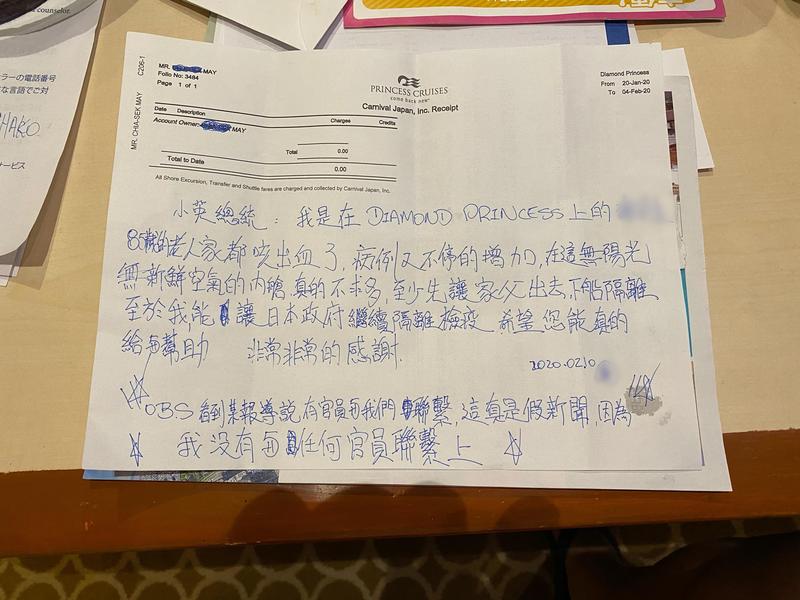 counselor.
ラーの電話番号
な言語でご対
HAKO
サービス
C206-1
MR. CHIA-SEK MAY
MR. MAY
Folio No: 3484
Page 1 of 1
PRINCESS CRUISES
come back new
Carnival Japan, Inc. Receipt
Diamond Princess
From 20-Jan-20
To 04-Feb-20
Date Description Charges Credits
Account Owner: MAY
Total 0.00
Total to Date 0.00
All Shore Excursion, Transfer and Shuttle fares are charged and collected by Carnival Japan, Inc.
小英總統：我是在 DIAMOND PRINCESS上的
85歲的老人家都咳出血了，病例又不停的增加，在這無陽光
無新鮮空氣的內艙，真的不求多，至少先讓家父出去，下船隔離
至於我，能讓日本政府繼續隔離檢疫 希望您能真的
給每幫助 非常非常的感謝.
2020.02.10
OBS 看到某報導説有官員每我們聯繫，這真是假新聞，因為
我没有每任何官員聯繫上